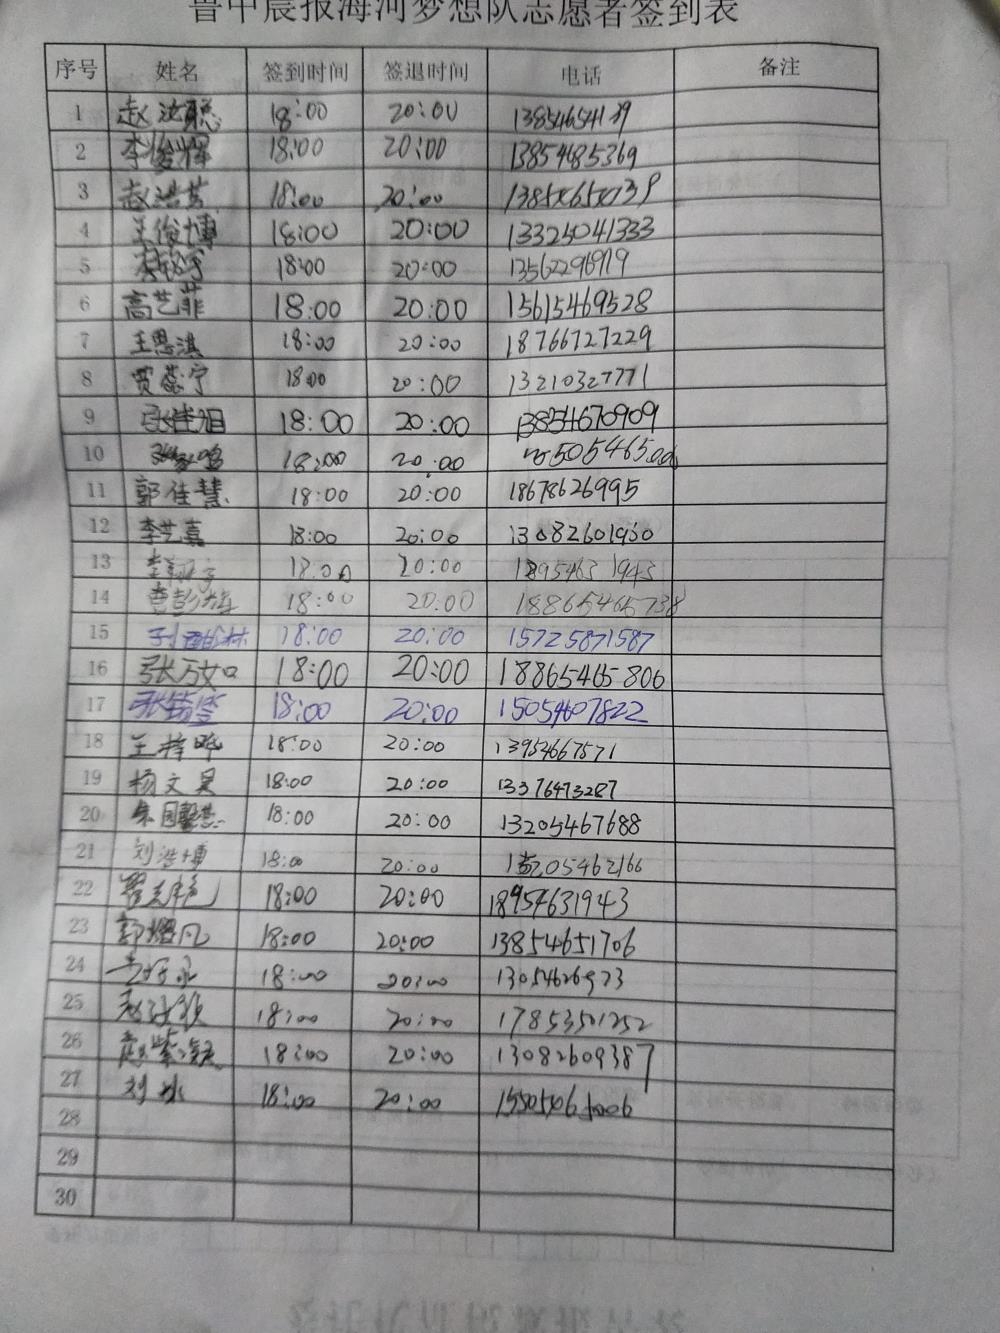 鲁中晨报海河梦想队志愿者签到表
序号 姓名 签到时间 签退时间 电话 备注
1 赵汝聪 18:00 20:00
2 李俊辉 18:00 20:00 13854685369
3 18:00 20:00
4 王俊博 18:00 20:00 13325041333
5 18:00 20:00
6 高艺菲 18:00 20:00 15615469528
7 王思淇 18:00 20:00 18766727229
8 贾蕊宁 18:00 20:00 13210327771
9 张佳旭 18:00 20:00 13854670909
10 18:00 20:00
11 郭佳慧 18:00 20:00 18678626995
12 李艺嘉 18:00 20:00 13082601930
13 18:00 20:00 18954631943
14 18:00 20:00 18865465738
15 18:00 20:00 15725871587
16 张方如 18:00 20:00 18865465806
17 18:00 20:00 15054607822
18 王梓晔 18:00 20:00 13954667571
19 杨文昊 18:00 20:00 13376473287
20 18:00 20:00 13205467688
21 刘浩博 18:00 20:00
22 18:00 20:00 18954631943
23 18:00 20:00 13854651706
24 18:00 20:00
25 18:00 20:00 17853501252
26 赵紫凝 18:00 20:00 13082609387
27 刘冰 18:00 20:00
28
29
30